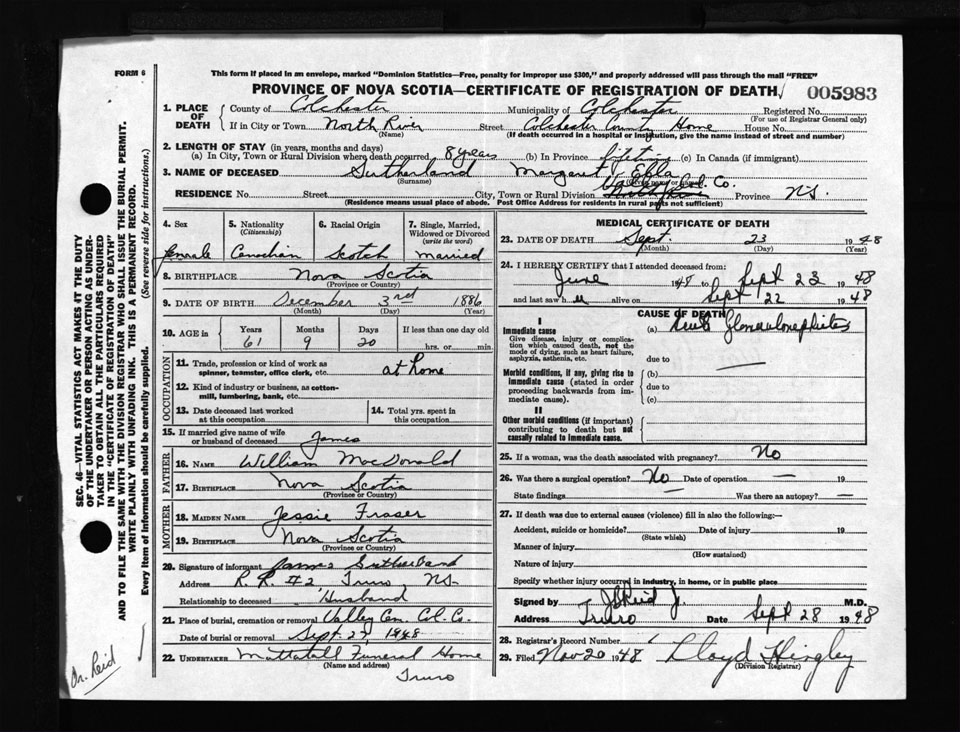 FORM 6
This form if placed in an envelope, marked "Dominion Statistics—Free, penalty for improper use $300," and properly addressed will pass through the mail "FREE"
PROVINCE OF NOVA SCOTIA—CERTIFICATE OF REGISTRATION OF DEATH 005983
1. PLACE OF DEATH County of Colchester Municipality of Colchester Registered No.
(For use of Registrar General only)
If in City or Town North River Street Colchester County Home House No.
(Name) (If death occurred in a hospital or institution, give the name instead of street and number)
2. LENGTH OF STAY (in years, months and days)
(a) In City, Town or Rural Division where death occurred 8 years (b) In Province lifetime (c) In Canada (if immigrant)
3. NAME OF DECEASED Sutherland Margaret
(Surname)
RESIDENCE No. Street City, Town or Rural Division Co. Province N.S.
(Residence means usual place of abode. Post Office Address for residents in rural parts not sufficient)
4. Sex 5. Nationality 6. Racial Origin 7. Single, Married, Widowed or Divorced
(Citizenship) (write the word)
female Canadian Scotch married
8. BIRTHPLACE Nova Scotia
(Province or Country)
9. DATE OF BIRTH December 3rd 1886
(Month) (Day) (Year)
10. AGE in Years Months Days If less than one day old
61 9 20 hrs. or min.
OCCUPATION
11. Trade, profession or kind of work as spinner, teamster, office clerk, etc. at home
12. Kind of industry or business, as cotton-mill, lumbering, bank, etc.
13. Date deceased last worked at this occupation
14. Total yrs. spent in this occupation
15. If married give name of wife or husband of deceased James
FATHER
16. NAME William MacDonald
17. BIRTHPLACE Nova Scotia
(Province or Country)
MOTHER
18. MAIDEN NAME Jessie Fraser
19. BIRTHPLACE Nova Scotia
(Province or Country)
20. Signature of informant James Sutherland
Address R.R. #2 Truro N.S.
Relationship to deceased Husband
21. Place of burial, cremation or removal Valley Cem. Col. Co.
Date of burial or removal Sept. 27, 1948
22. UNDERTAKER Mattatall Funeral Home
(Name and address)
Truro
MEDICAL CERTIFICATE OF DEATH
23. DATE OF DEATH Sept. 23 1948
(Month) (Day) (Year)
24. I HEREBY CERTIFY that I attended deceased from:
June 1948 to Sept 23 1948
and last saw her alive on Sept 22 1948
CAUSE OF DEATH
I
Immediate cause (a)
Give disease, injury or complication which caused death, not the mode of dying, such as heart failure, asphyxia, asthenia, etc.
due to
Morbid conditions, if any, giving rise to immediate cause (stated in order proceeding backwards from immediate cause).
(b)
due to
(c)
II
Other morbid conditions (if important) contributing to death but not causally related to immediate cause.
25. If a woman, was the death associated with pregnancy? No
26. Was there a surgical operation? No Date of operation — 19
State findings Was there an autopsy? —
27. If death was due to external causes (violence) fill in also the following:—
Accident, suicide or homicide? Date of injury 19
(State which)
Manner of injury
(How sustained)
Nature of injury
Specify whether injury occurred in industry, in home, or in public place
Signed by Reid M.D.
Address Truro Date Sept 28 1948
28. Registrar's Record Number
29. Filed Nov 20 1948 Lloyd Hingley
(Division Registrar)
SEC. 46—VITAL STATISTICS ACT MAKES IT THE DUTY
OF THE UNDERTAKER OR PERSON ACTING AS UNDER-
TAKER TO OBTAIN ALL THE PARTICULARS REQUIRED
IN THE "CERTIFICATE OF REGISTRATION OF DEATH"
AND TO FILE THE SAME WITH THE DIVISION REGISTRAR WHO SHALL ISSUE THE BURIAL PERMIT.
WRITE PLAINLY WITH UNFADING INK. THIS IS A PERMANENT RECORD.
Every item of information should be carefully supplied. (See reverse side for instructions.)
Dr. Reid